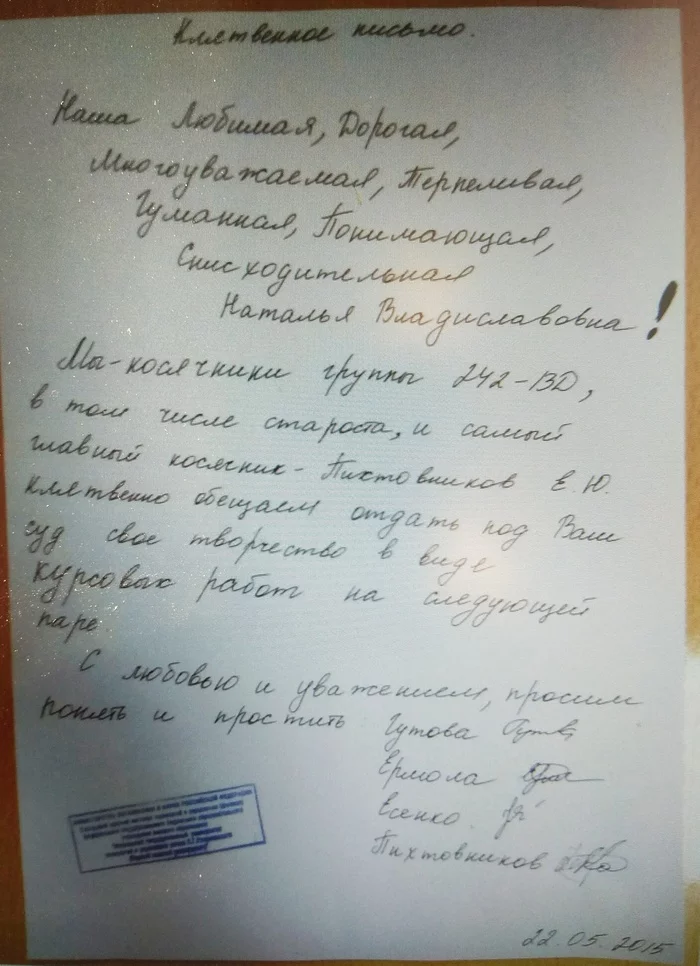 Клятвенное письмо.
Наша Любимая, Дорогая,
Многоуважаемая, Терпеливая,
Гуманная, Понимающая,
Снисходительная
Наталья Владиславовна!
Мы-косячники группы 242-ВД,
в том числе староста, и самый
главный косячник - Пихтовников Е.Ю.
клятвенно обещаем отдать под Ваш
суд свое творчество в виде
курсовых работ на следующей
паре.
С любовью и уважением, просим
понять и простить Гутова
Ермола
Есенко
Пихтовников
22.05.2015